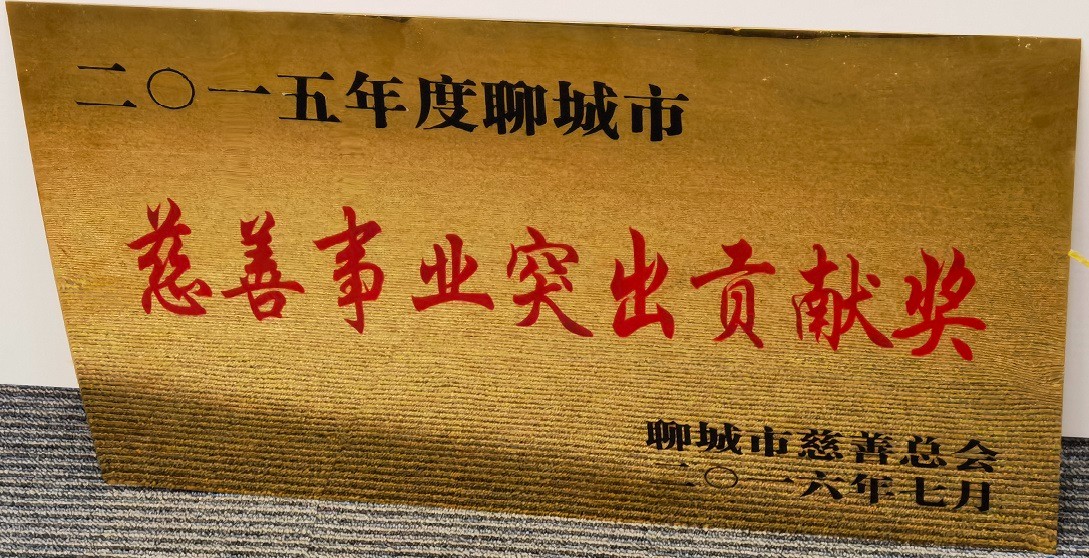 二〇一五年度聊城市
慈善事业突出贡献奖
聊城市慈善总会
二〇一六年七月